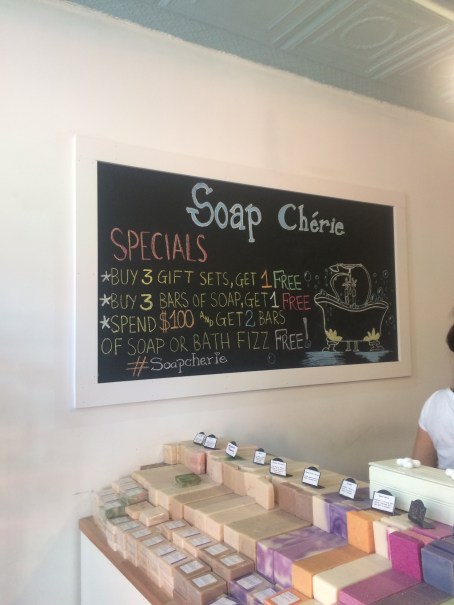 Soap Chérie
SPECIALS
*BUY 3 GIFT SETS, GET 1 FREE
*BUY 3 BARS OF SOAP, GET 1 FREE
*SPEND $100 AND GET 2 BARS
OF SOAP OR BATH FIZZ FREE!
#Soapcherie